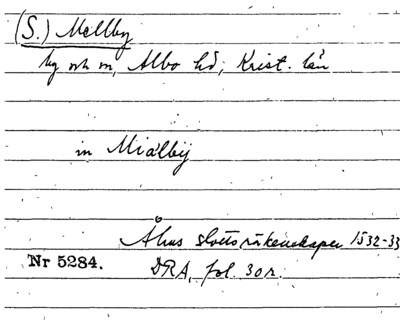 (S.) Mellby
by och sn, Albo hd, Krist. län
in Mialbij
Åhus slottsräkenskaper 1532-33
Nr 5284. DRA, fol. 30 r.